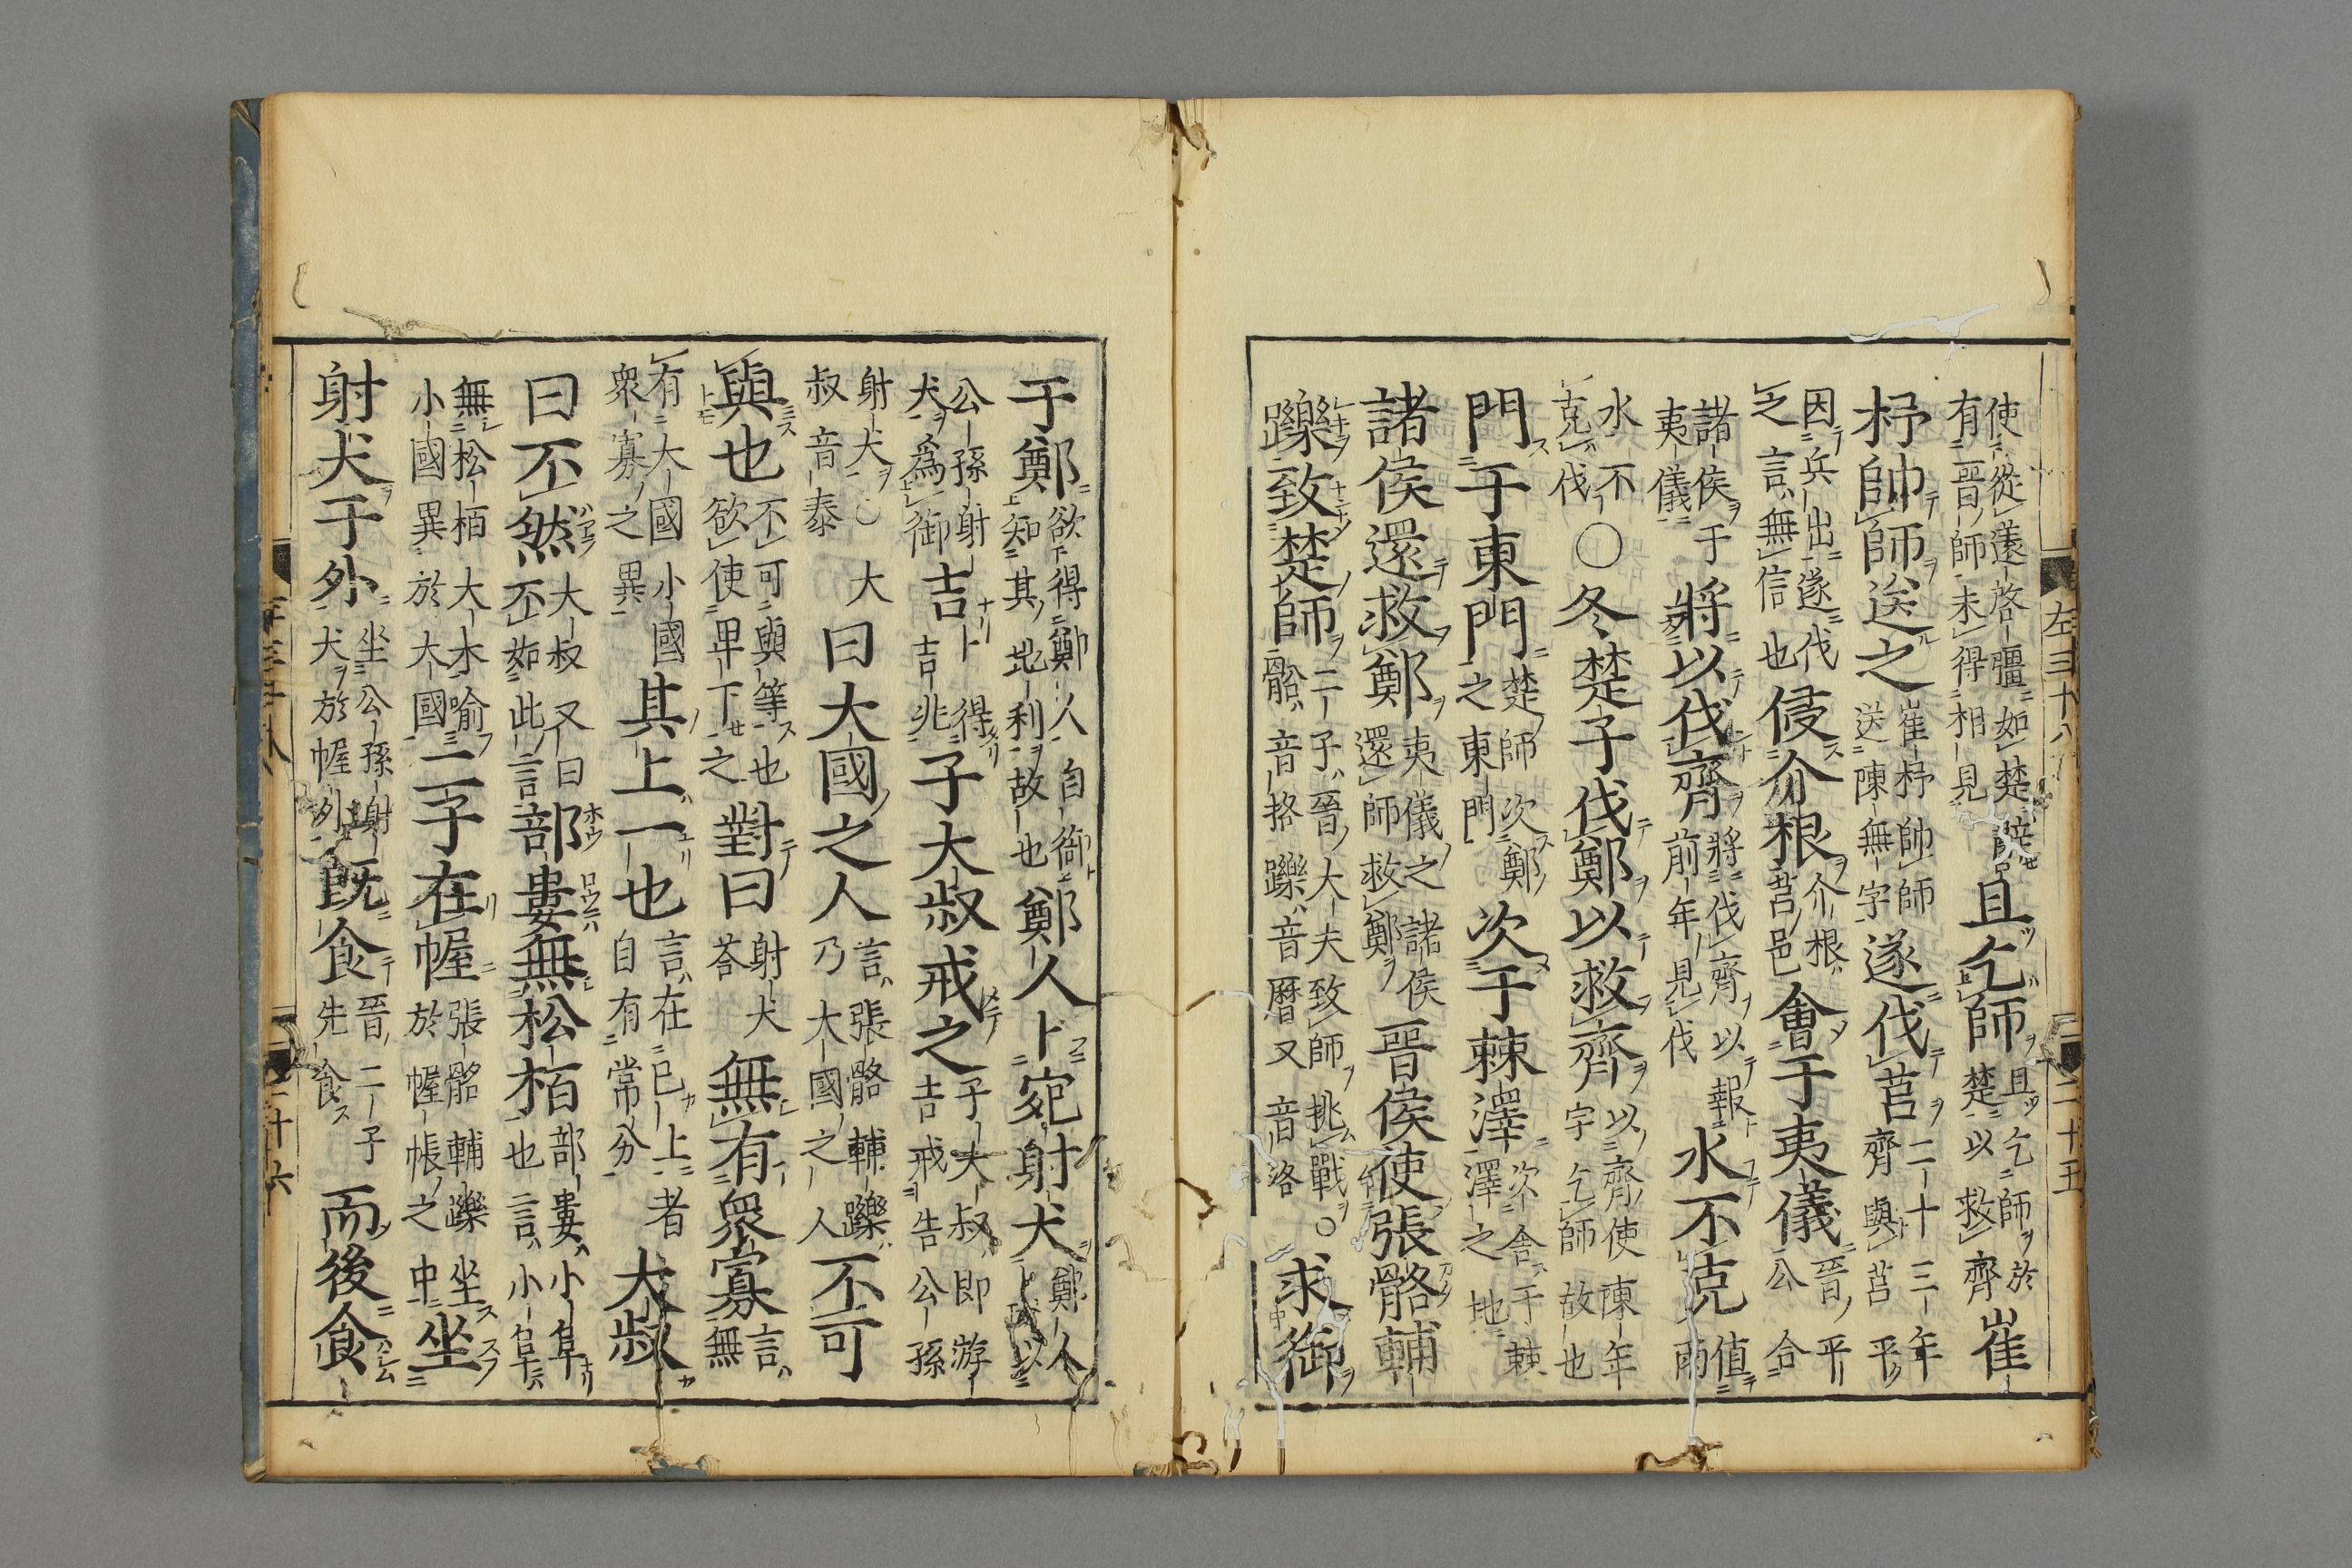 左三十八 二十五
使從薳啓彊如楚辭
有晉師未得相見
且乞師
且乞師於
楚以救齊
崔
杼帥師送之
崔杼帥師
送陳無字
遂伐莒
二十三年
齊與莒平
因兵出遂伐
之言無信也
侵介根
介根
莒邑
會于夷儀
晉平
公合
諸侯于
夷儀
將以伐齊
將伐齊以報
前年見伐
水不克
值
雨
水不
克伐
○冬楚子伐鄭以救齊
以齊使陳年
字乞師故也
門于東門
楚師次鄭
之東門
次于棘澤
次舍于棘
澤之地
諸侯還救鄭
夷儀之諸侯
還師救鄭
晉侯使張骼輔
躒致楚師
二子晉大夫致師挑戰○
骼音挌躒音曆又音洛
求御
于鄭
欲得鄭人自御
知其地利故也
鄭人卜宛射犬
鄭人
卜以
公孫射
犬爲御
吉
卜得
吉兆
子大叔戒之
子大叔即游
吉戒告公孫
射犬○大
叔音泰
曰大國之人
言張骼輔躒
乃大國之人
不可
與也
不可與等也
欲使卑下之
對曰
射犬
荅
無有衆寡
言
無
有大國小國
衆寡之異
其上一也
言在己上者
自有常分
大叔
曰不然
大叔又曰
不如此言
部婁無松栢
部婁小阜
也言小阜
無松栢大木喻
小國異於大國
二子在幄
張骼輔躒坐
於幄帳之中
坐
射犬于外
坐公孫射
犬於幄外
既食
晉二子
先食
而後食
二十六